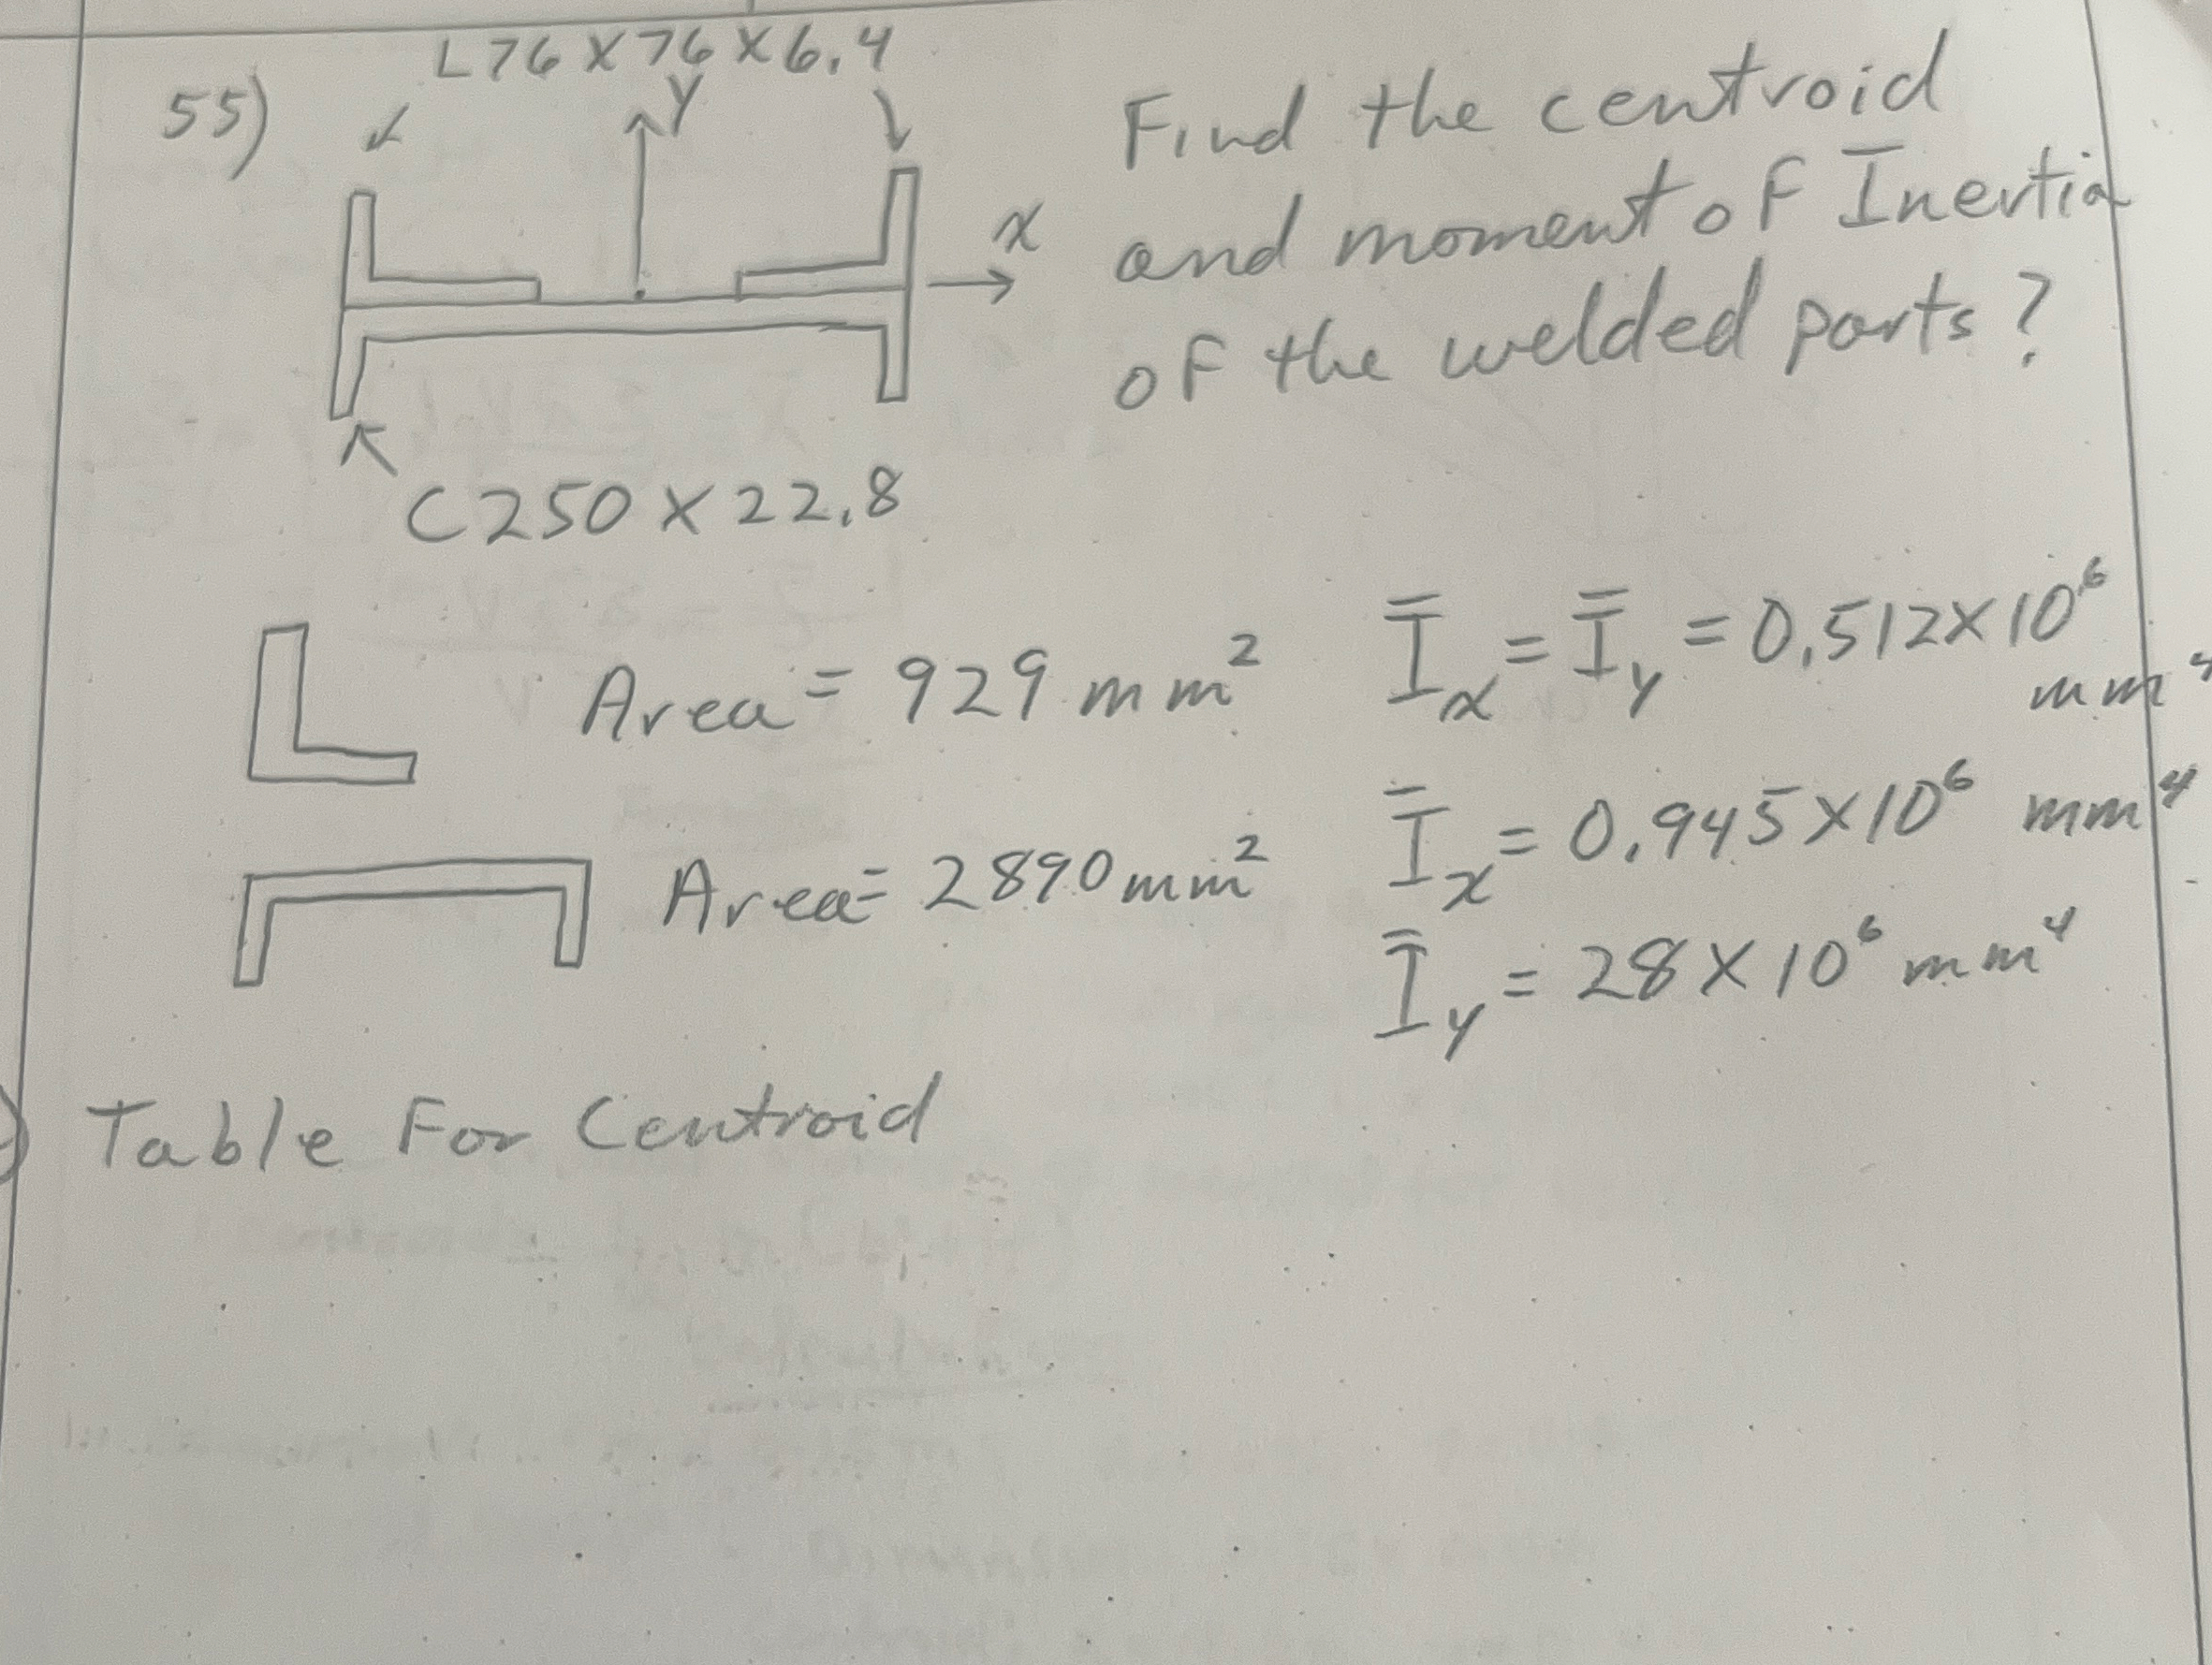 L76 X 76 X 6.4
55)
Y
x
Find the centroid
and moment of Inertia
of the welded parts?
C250 X 22.8
Area = 929 mm²
I̿x = I̿y = 0.512 X 10⁶
mm⁴
Area = 2890 mm²
I̿x = 0.945 X 10⁶ mm⁴
I̿y = 28 X 10⁶ mm⁴
) Table For Centroid